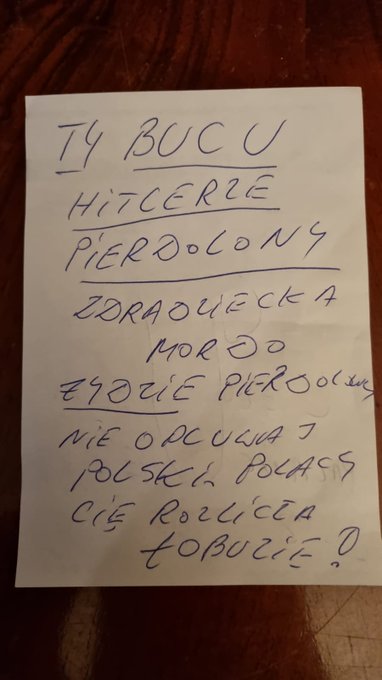 TY BUCU
HITLERZE
PIERDOLONY
ZDRADZIECKA
MORDO
ŻYDZIE PIERDOLONY
NIE OPLUWAJ
POLSKI. POLACY
CIĘ ROZLICZĄ
ŁOBUZIE!